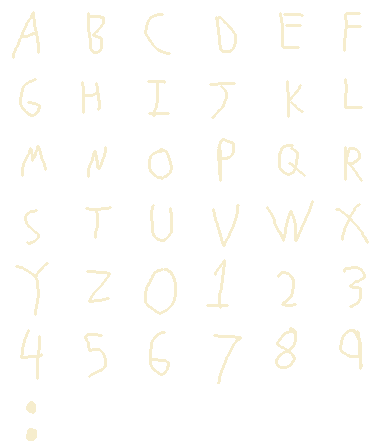 A B C D E F
G H I J K L
M N O P Q R
S T U V W X
Y Z 0 1 2 3
4 5 6 7 8 9
: